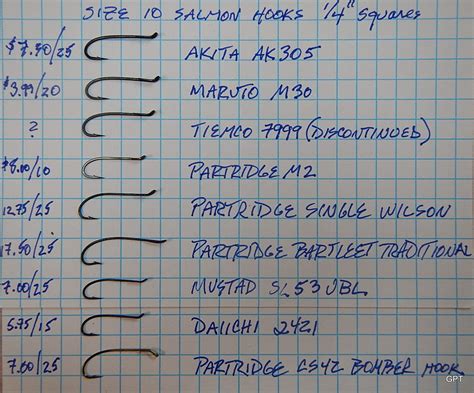 SIZE 10 SALMON HOOKS 1/4" SQUARES
$7.50/25 AKITA AK305
$3.99/20 MARUTO M30
? TIEMCO 7999 (DISCONTINUED)
$8.00/10 PARTRIDGE M2
12.75/25 PARTRIDGE SINGLE WILSON
17.50/25 PARTRIDGE BARTLEET TRADITIONAL
7.00/25 MUSTAD SL53UBL
5.75/15 DAIICHI 2421
7.60/25 PARTRIDGE CS42 BOMBER HOOK
GPT